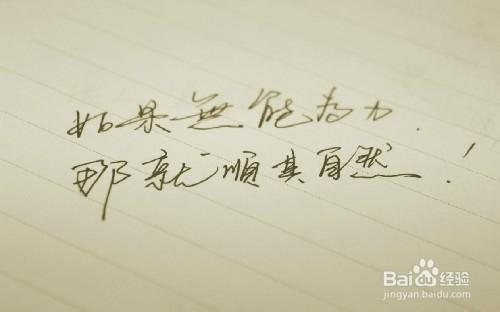 如果無能為力.
那就順其自然!
Baidu经验
jingyan.baidu.com